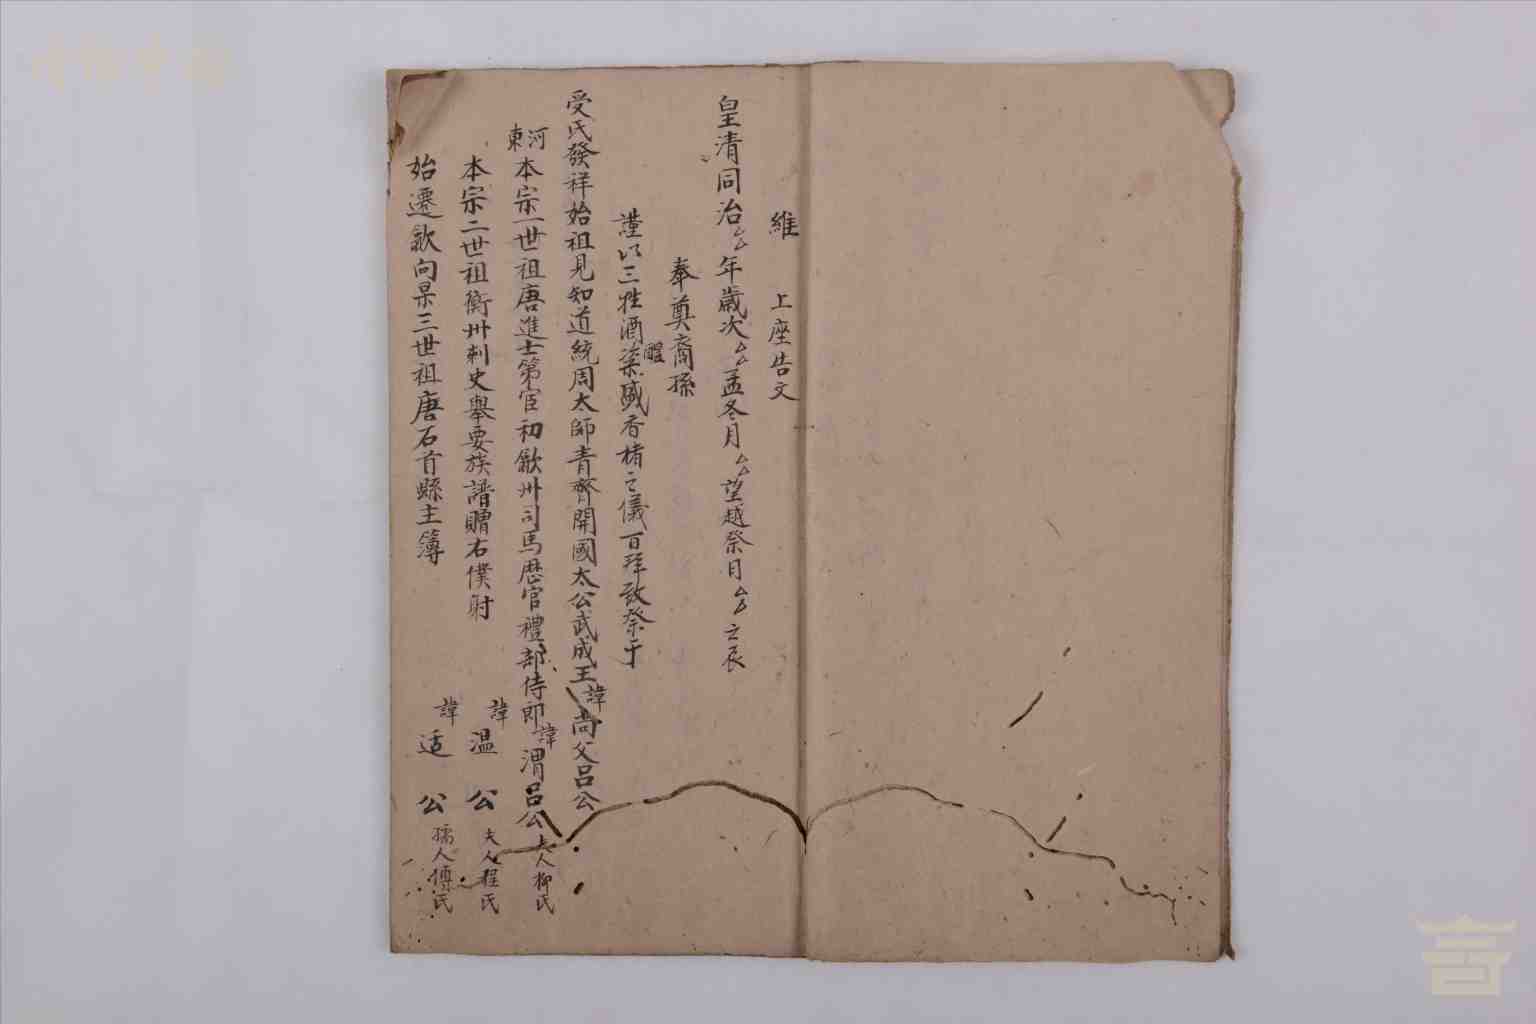 維　上座告文
皇清同治厶厶年歲次厶厶孟冬月厶厶望越祭日厶厶之辰
奉奠裔孫
謹以三牲酒醴粢盛香楮之儀百拜致祭于
受氏發祥始祖見知道統周太師青齊開國太公武成王諱尚父呂公
河東本宗一世祖唐進士第宦初歙州司馬歷官禮部侍郎諱渭呂公夫人柳氏
本宗二世祖衡州刺史舉要族譜贈右僕射諱温公夫人程氏
始遷歙向杲三世祖唐石首縣主簿諱适公孺人傅氏